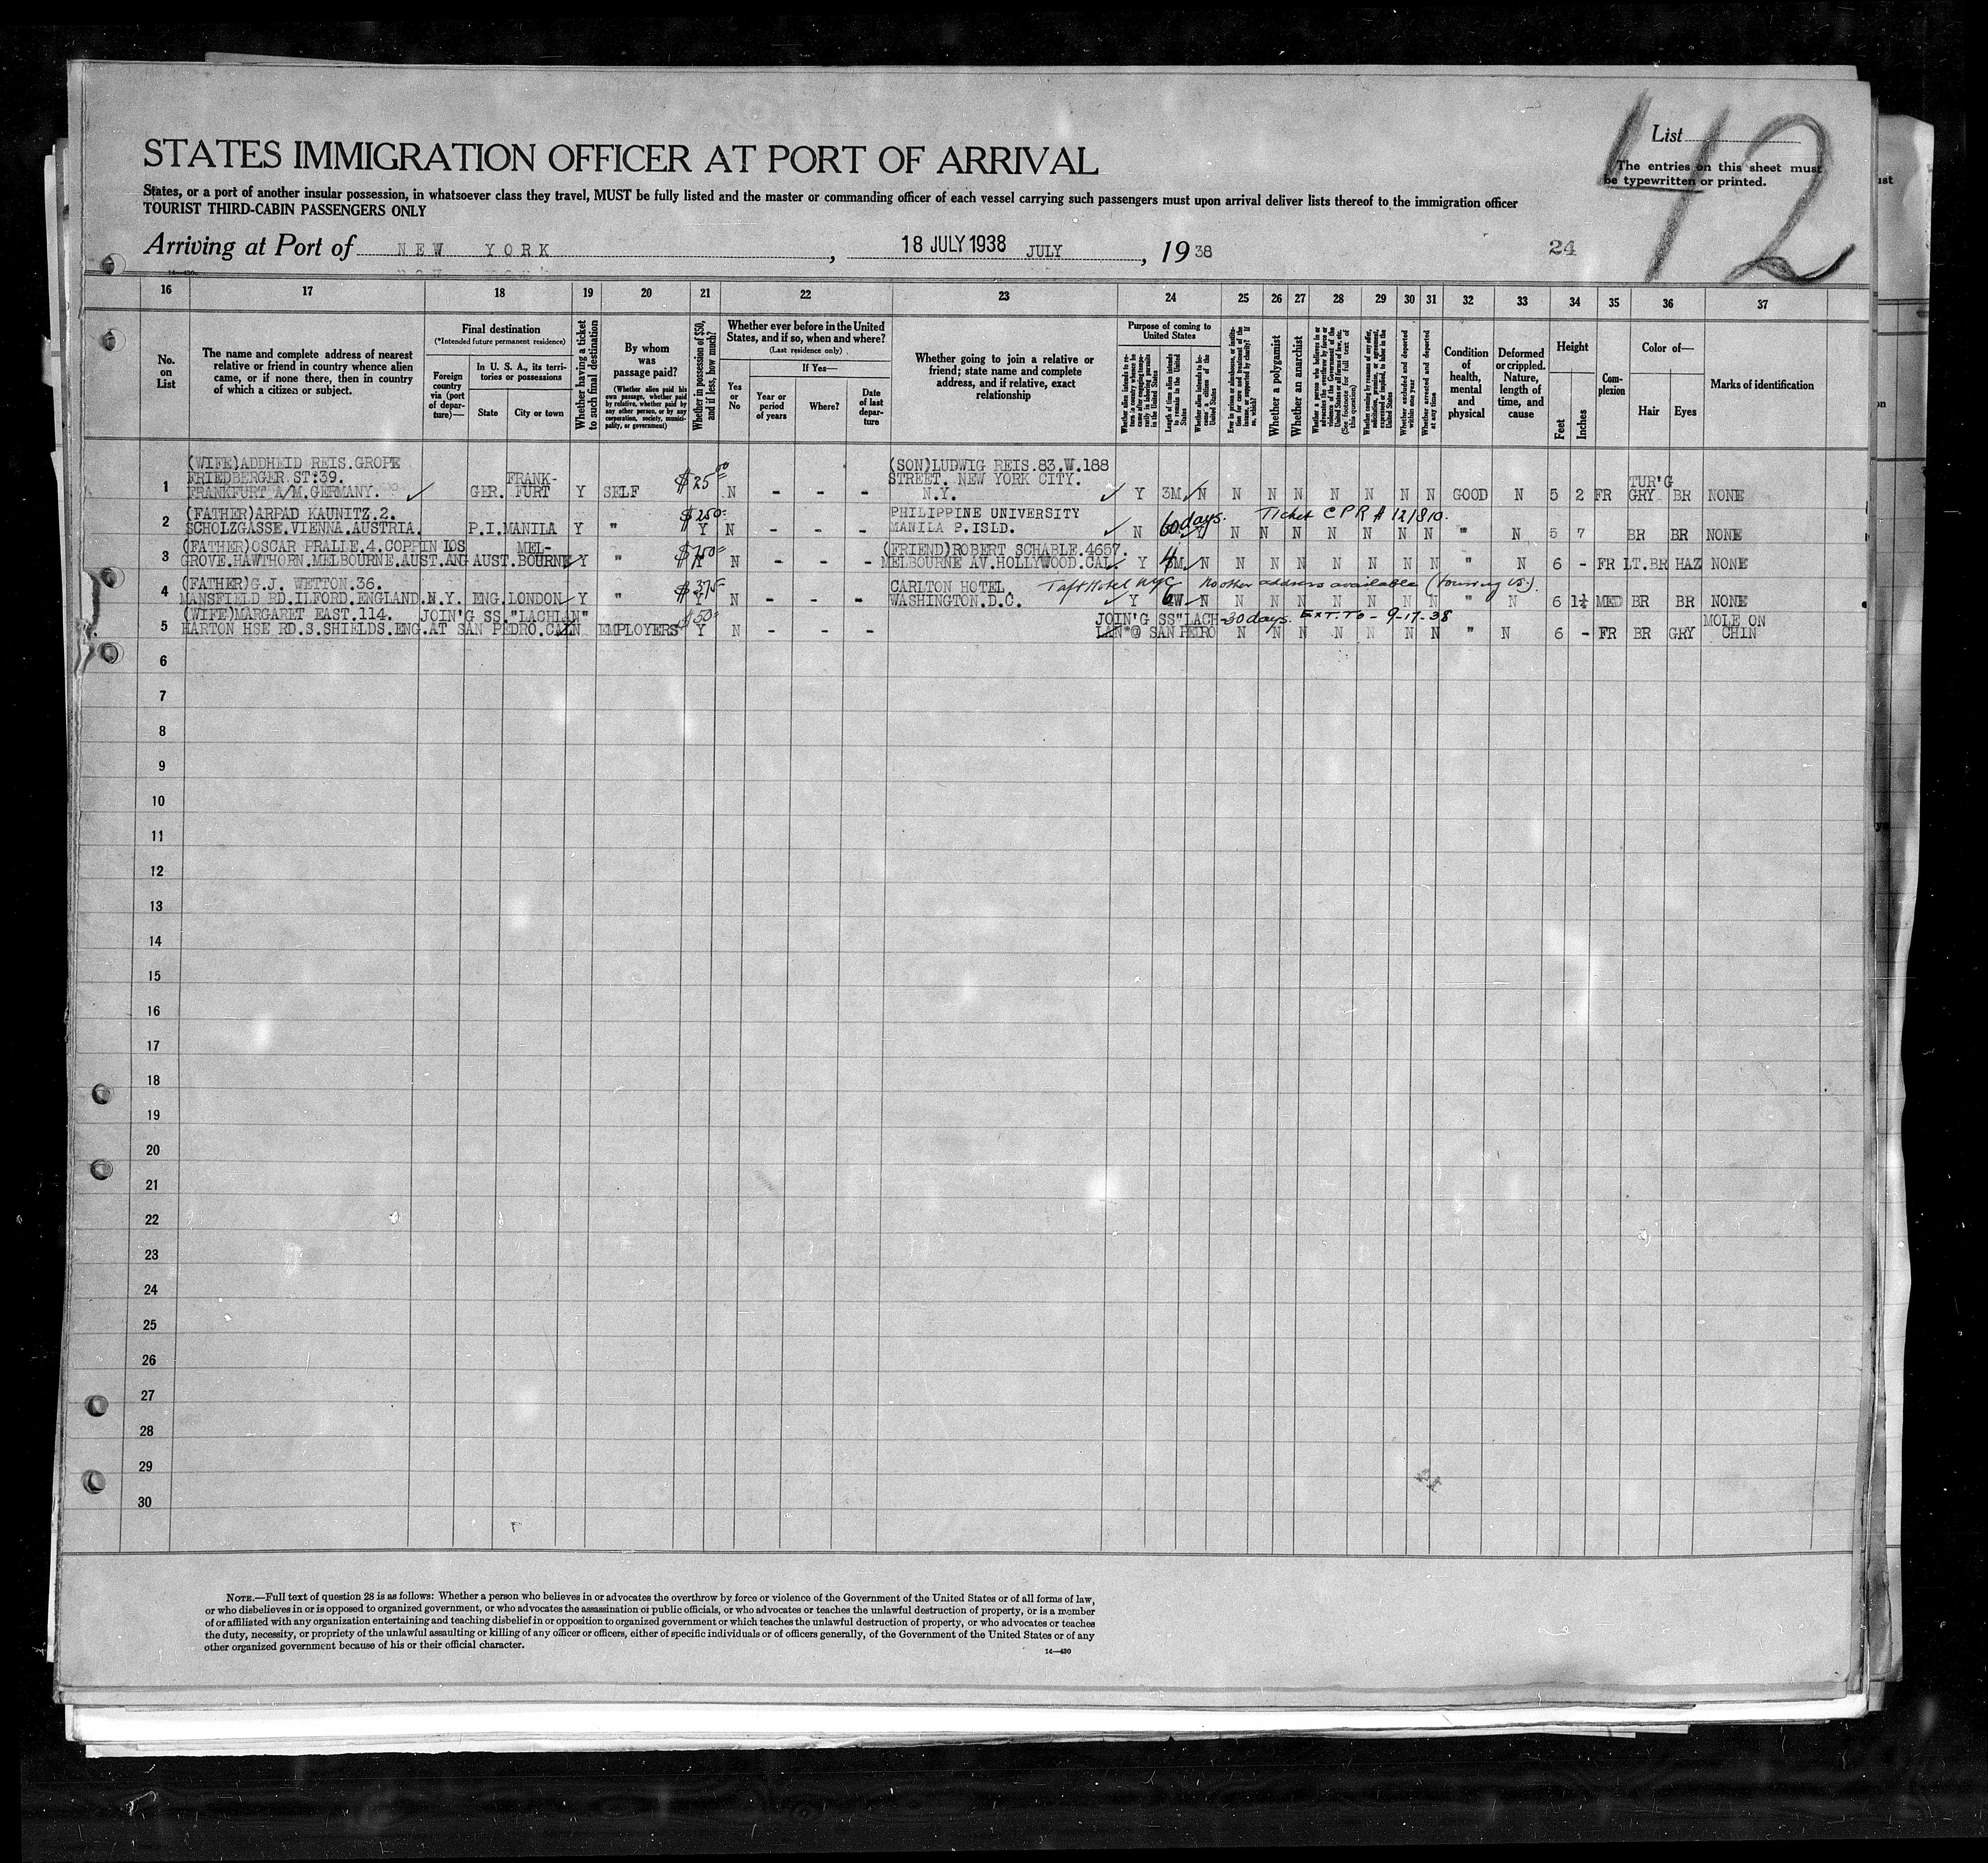 List
412
The entries on this sheet must
be typewritten or printed.
STATES IMMIGRATION OFFICER AT PORT OF ARRIVAL
States, or a port of another insular possession, in whatsoever class they travel, MUST be fully listed and the master or commanding officer of each vessel carrying such passengers must upon arrival deliver lists thereof to the immigration officer
TOURIST THIRD-CABIN PASSENGERS ONLY
Arriving at Port of NEW YORK, 18 JULY 1938 JULY, 1938
24
14—430
16 17 18 19 20 21 22 23 24 25 26 27 28 29 30 31 32 33 34 35 36 37
No. on List
The name and complete address of nearest
relative or friend in country whence alien
came, or if none there, then in country
of which a citizen or subject.
Final destination
(*Intended future permanent residence)
Foreign country via (port of departure)—
In U. S. A., its territories or possessions
State
City or town
Whether having a ticket to such final destination
By whom was passage paid?
(Whether alien paid his own passage, whether paid by relative, whether paid by any other person, or by any corporation, society, municipality, or government)
Whether in possession of $50, and if less, how much?
Whether ever before in the United
States, and if so, when and where?
(Last residence only)
Yes or No
If Yes—
Year or period of years
Where?
Date of last departure
Whether going to join a relative or
friend; state name and complete
address, and if relative, exact
relationship
Purpose of coming to United States
Whether alien intends to return to country whence he came after engaging temporarily in laboring pursuits in the United States
Length of time alien intends to remain in the United States
Whether alien intends to become a citizen of the United States
Ever in prison or almshouse, or institution for care and treatment of the insane, or supported by charity? If so, which?
Whether a polygamist
Whether an anarchist
(See footnote for full text of this question)
Whether coming by reasons of any offer, solicitation, promise, or agreement, expressed or implied, to labor in the United States
Whether excluded and deported within one year
Whether arrested and deported at any time
Condition of health, mental and physical
Deformed or crippled. Nature, length of time, and cause
Height
Feet
Inches
Complexion
Color of—
Hair
Eyes
Marks of identification
(WIFE)ADDHEID REIS.GROPE (SON)LUDWIG REIS.83.W.188
FRIEDBERGER ST:39. FRANK- $25 00 STREET. NEW YORK CITY. TUR'G
1 FRANKFURT A/M.GERMANY. GER. FURT Y SELF N - - - N.Y. Y 3M N N N N N N N N GOOD N 5 2 FR GRY BR NONE
(FATHER)ARPAD KAUNITZ.2. $250 PHILIPPINE UNIVERSITY 60 days. Ticket CPR # 121810.
2 SCHOLZGASSE.VIENNA.AUSTRIA. P.I.MANILA Y " Y N - - - MANILA P.ISLD. N N N N N N N N " N 5 7 BR BR NONE
(FATHER)OSCAR PRALLE.4.COPPIN LOS MEL- $700 (FRIEND)ROBERT SCHABLE.4657.
3 GROVE.HAWTHORN.MELBOURNE.AUST.ANG AUST.BOURNE Y " Y N - - - MELBOURNE AV.HOLLYWOOD.CAL. Y 4M N N N N N N N N " N 6 - FR LT.BR HAZ NONE
(FATHER)G.J. WETTON.36. $375 CARLTON HOTEL Taft Hotel NYC No other address available (touring US.)
4 MANSFIELD RD.ILFORD.ENGLAND.N.Y. ENG.LONDON Y " Y N - - - WASHINGTON.D.C. Y 6W N N N N N N N N " N 6 1½ MED BR BR NONE
(WIFE)MARGARET EAST.114. JOIN'G SS."LACHLAN" $50 JOIN'G SS"LACH- 30 days. EXT. TO - 9-17-38 MOLE ON
5 HARTON HSE RD.S.SHIELDS.ENG.AT SAN PEDRO.CAL N EMPLOYERS Y N - - - LAN"@ SAN PEDRO N N N N N N N " N 6 - FR BR GRY CHIN
6
7
8
9
10
11
12
13
14
15
16
17
18
19
20
21
22
23
24
25
26
27
28
29
30
NOTE.—Full text of question 28 is as follows: Whether a person who believes in or advocates the overthrow by force or violence of the Government of the United States or of all forms of law,
or who disbelieves in or is opposed to organized government, or who advocates the assassination of public officials, or who advocates or teaches the unlawful destruction of property, or is a member
of or affiliated with any organization entertaining and teaching disbelief in or opposition to organized government or which teaches the unlawful destruction of property, or who advocates or teaches
the duty, necessity, or propriety of the unlawful assaulting or killing of any officer or officers, either of specific individuals or of officers generally, of the Government of the United States or of any
other organized government because of his or their official character.
14—430